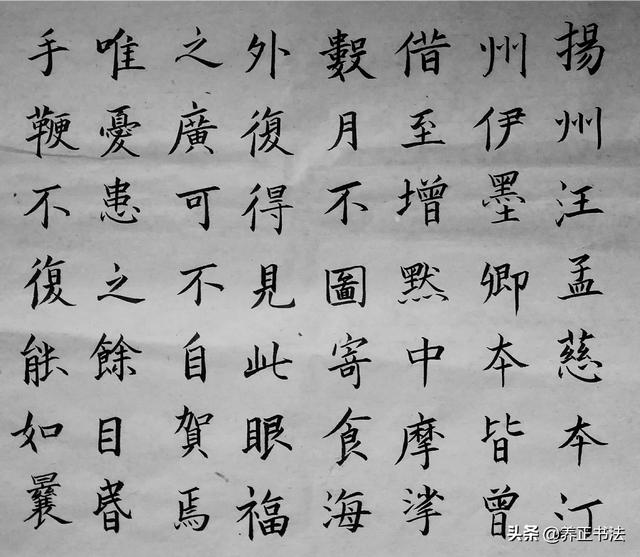 揚州汪孟慈本汀
州伊墨卿本皆曾
借至增默中摩挲
數月不圖寄食海
外復得見此眼福
之廣可不自賀焉
唯憂患之餘目
手鞭不復能如曩
头条 @养正书法